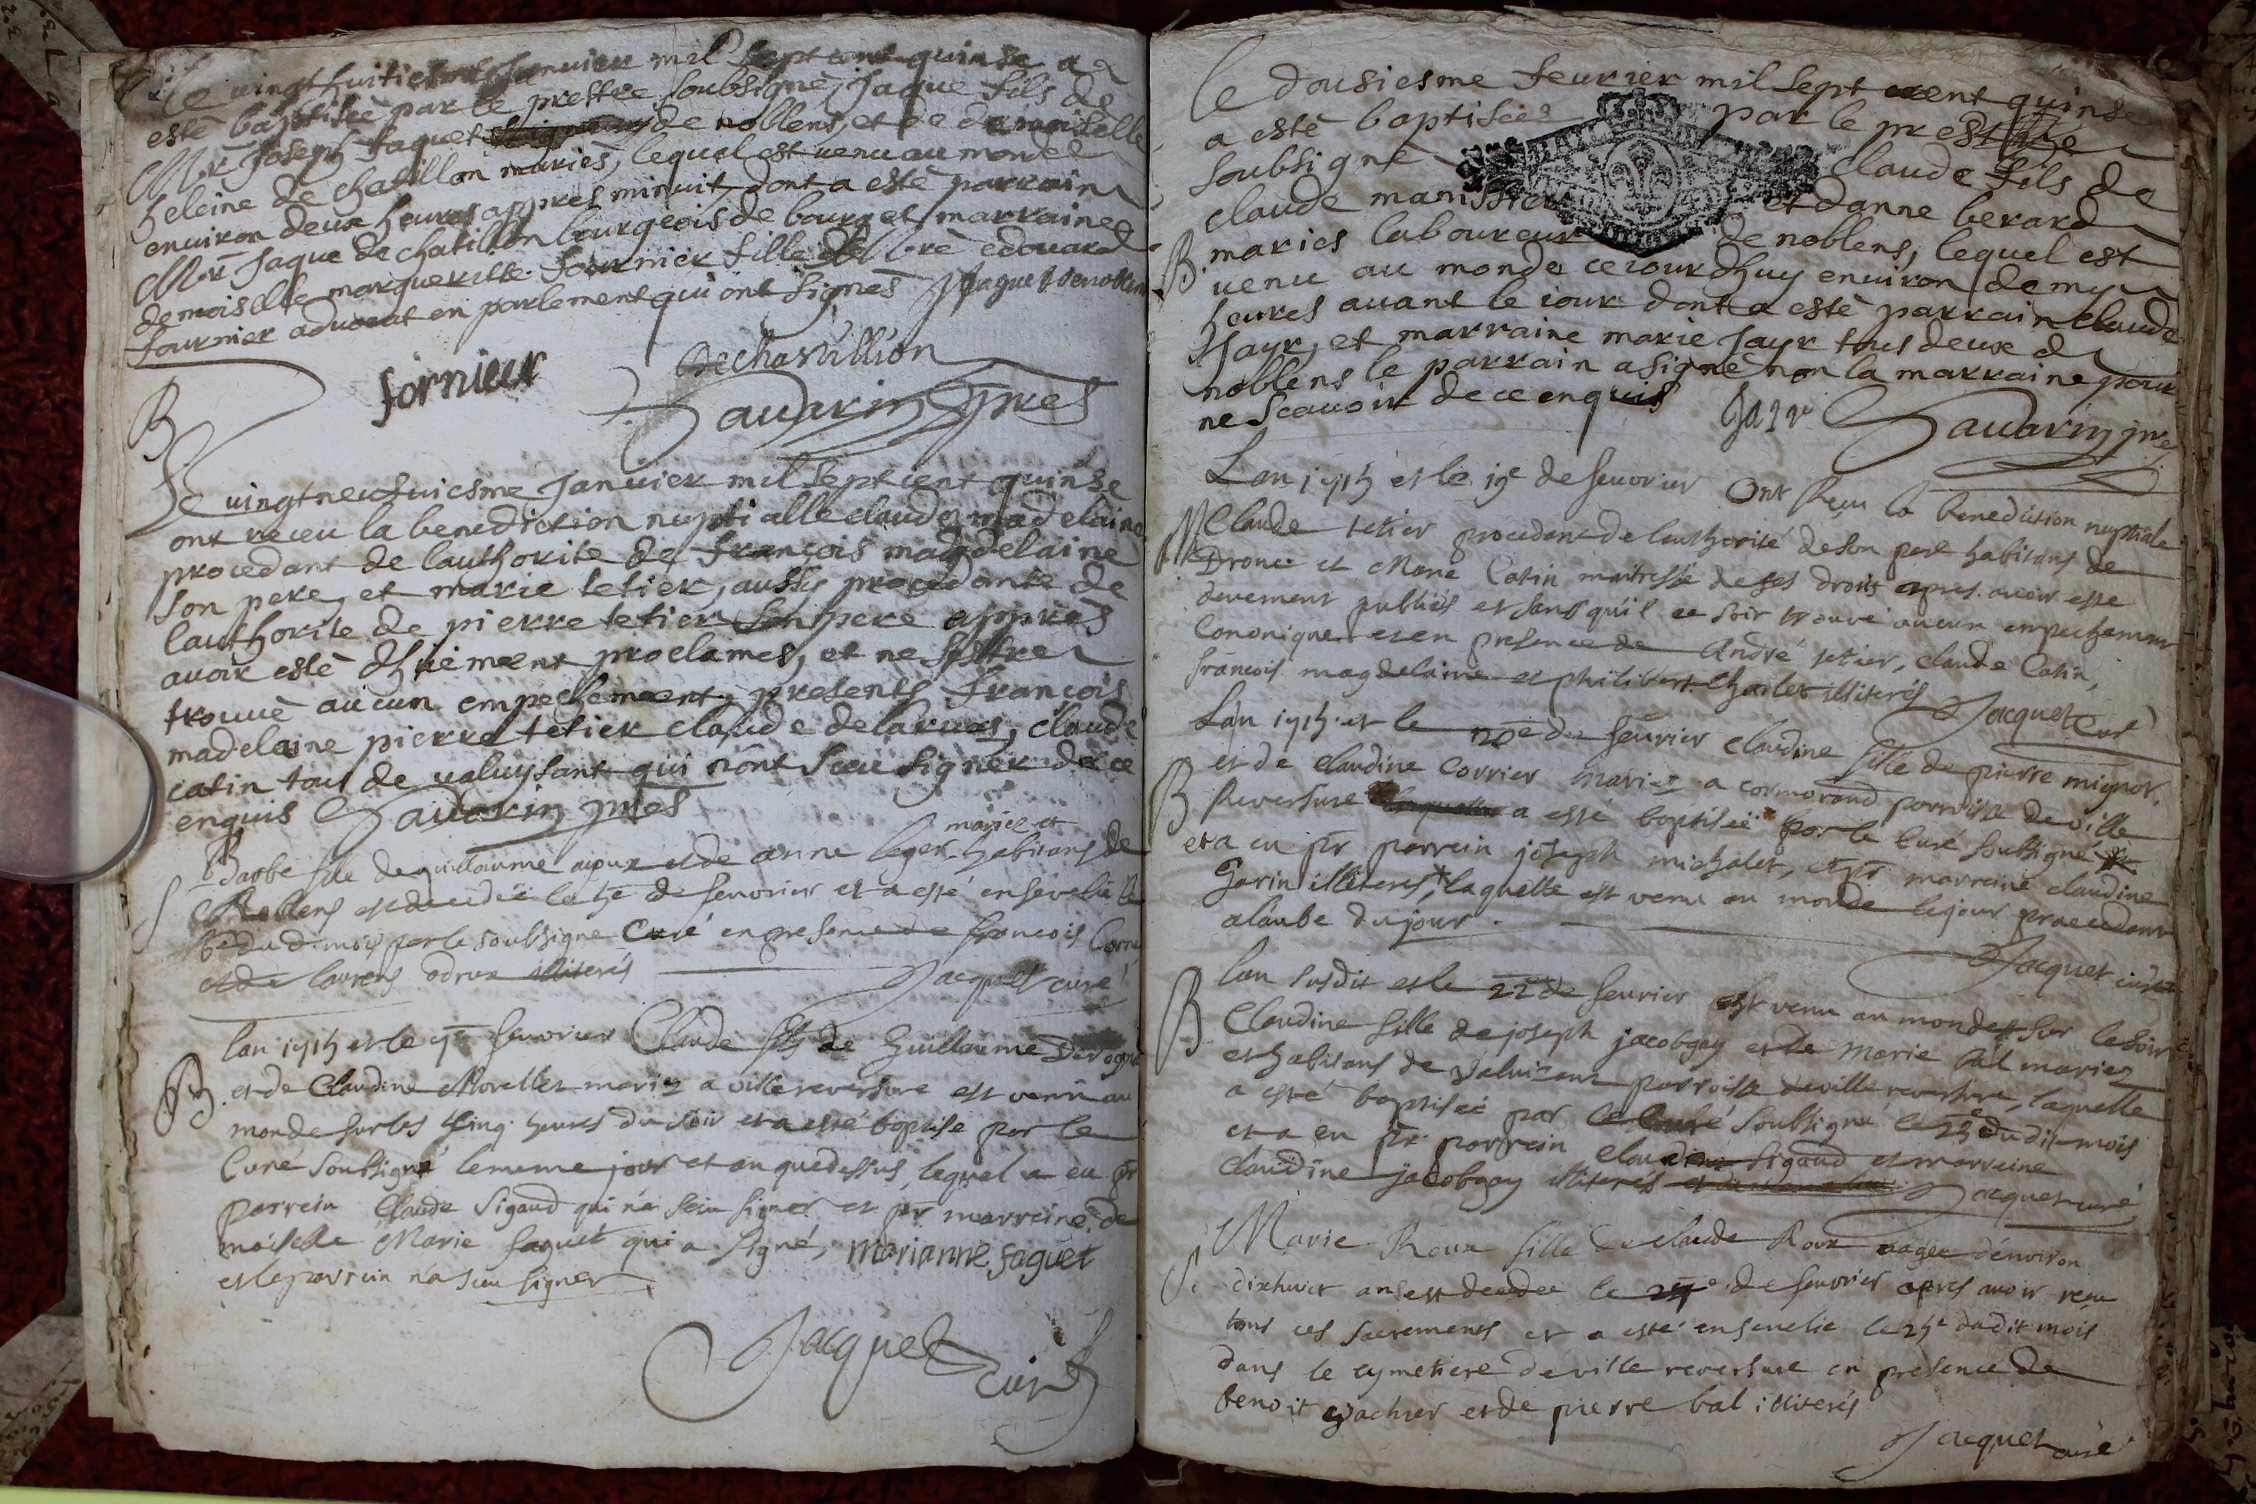 Le vingt huitiesme Janvier mil sept cent quinse a
esté baptisée par le prestre soubsigné, Jaque fils de
Mr. Joseph faquet de noblens, et de demoiselle
heleine de chatillon mariés, lequel est venu au monde
environ deux heures appres minuit, dont a esté parrain
Mr. Jaque de chatillon bourgeois de bourg et marraine
demoiselle margueritte fournier fille de Mre edouard
fournier advocat en parlement qui ont signés faquet de noblens
fornieer Dechastillion
Savarin ptres
B
Le vingt neufviesme Janvier mil sept cent quinse
ont receu la benediction nuptialle claude madelaine
procedant de lauthorité de françois magdelaine
son pere, et marie tetier, aussy procedante de
lauthorite de pierre tetier son pere appres
avoir esté dhuement proclames, et ne sestre
trouvé aucun empechement, presents françois
madelaine pierre tetier claude delaruas, claude
catin tous de valuysant qui n'ont sceu signer de ce
enquis Savarin ptres
mariez et
Barbe fille de guillaume et de anne leger habitans de
S
Noblens est decedée le 5e de fevvrier et a esté ensevelie le
6e du d. mois par le soubsigné Curé en presence de francois
et de laurens illiterés Jacquet curé
lan 1715 et le 7e fevvrier Claude fils de Guillaume
B. et de Claudine Morellet mariez a villereversure est venu au
monde sur les cinq heures du soir et a esté baptisé par le
Curé soubsigné le meme jour et an que dessus, lequel a eu pr
parrein Claude Sigaud qui n'a sceu signer et pr marreine de
moiselle Marie faquet qui a signé, marianne faguet
et le parrein n'a sceu signer
Jacquet curé
Le dousiesme feuvrier mil sept cent quinse
a esté baptisée par le prestre
soubsigné Claude fils de
claude manissier et danne berard
B. mariés laboureur de noblens, lequel est
venu au monde ce jourdhuy environ demy
heures avant le jour dont a esté parrain claude
Jayr, et marraine marie Jayr tous deux d
noblens le parrain a signé non la marraine pour
ne scavoir de ce enquis Jayr Savarin ptre
Lan 1715 et le 19e de fevvrier Ont Reçu la benediction nuptiale
M Claude tetier procedant de lauthorité de son pere habitans de
Drouce et Marie Catin maitresse de ses droits apres avoir esté
devement publiés et sans qu'il ce soit trouvé aucun empechement
Cononique et en presence de André tetier, Claude Catin,
françois magdelaine et philibert Charlet illiterés Jacquet Curé
Lan 1715 et le 20e de fevrier Claudine fille de pierre mignot
et de Claudine Corrier mariez a cormorand parroisse de ville
B Reversure a esté baptisée par le Curé soussigné *
et a eu pr parrein joseph michalet, et pr marreine claudine
Garin illiterés, * laquelle est venu au monde le jour praecedant
a laube du jour. Jacquet curé
B lan susdit et le 22e de fevrier est venu au monde sur le soir
Claudine fille de joseph jacobgay et de Marie bal mariez
et habitans de Valuisant parroisse de villereversure, laquelle
a esté baptisée par le Curé soussigné le 23e du dit mois
et a eu pr. parrein Claudine Sigaud et marreine
Claudine jacobgay illiterés Jacquet curé
Marie Roux fille de claude Roux aagée d'environ
S. dixhuict ans est decedee le 24e de fevvrier apres avoir reçu
tous ces sacrements et a esté ensevelie le 25e dudit mois
dans le cymetiere de villereversure en presence de
benoit gachier et de pierre bal illiterés
Jacquet curé